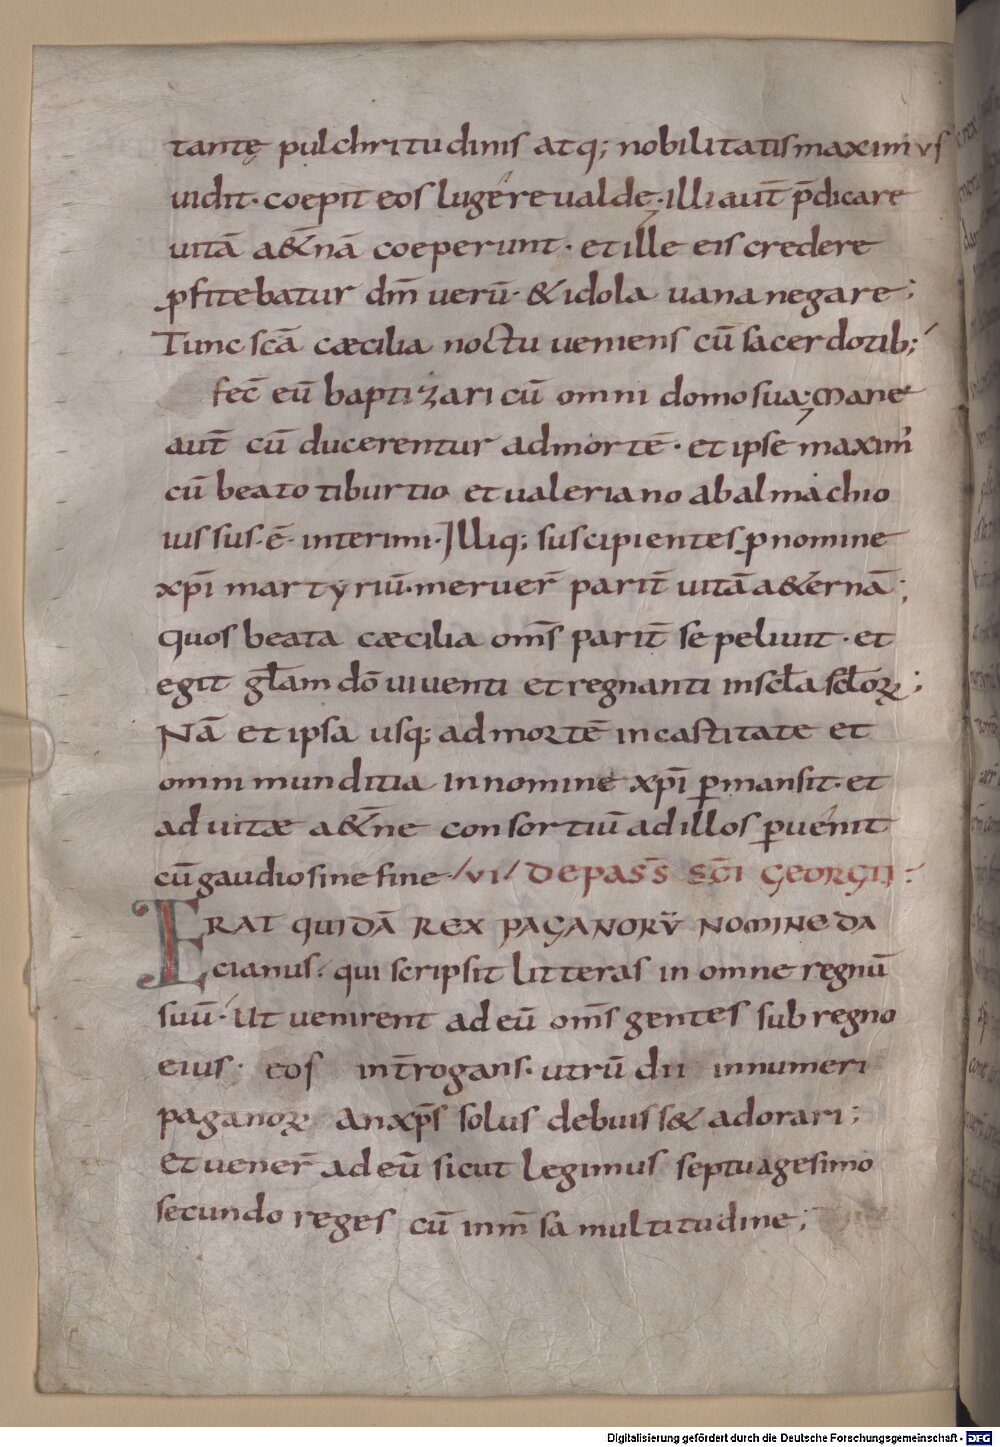 tantę pulchritudinis atq; nobilitatis maximus
uidit· coepit eos lugere ualde· illi aut̄ p̄dicare
uitā a&̄nā coeperunt· et ille eis credere
ꝓfitebatur dm̄ uerū· & idola uana negare;
Tunc sc̄a cæcilia noctu ueniens cū sacerdotib;
fec̄ eū baptizari cū omni domo sua; Mane
aut̄ cū ducerentur ad mortē· et ipse maxim'
cū beato tiburtio et ualeriano ab almachio
iussus· ē· interimi· Illiq; suscipientes ꝓ nomine
xp̄i martyriū· meruer̄ parit̄ uitā a&ernā;
Quos beata cæcilia om̄s parit̄ sepeliuit· et
egit gl̄am dō uiuenti et regnanti in scl̄a scl̄oꝝ;
Nā et ipsa usq; ad mortē in castitate et
omni munditia in nomine xp̄i ꝑmansit· et
ad uitæ a&̄ne consortiū ad illos ꝑuenit
cū gaudio sine fine /VI/ DE PASS̄ SC̄I GEORGII:
ERAT QUIDĀ REX PAGANORŪ NOMINE DA
cianus· qui scripsit litteras in omne regnū
suū· Ut uenirent ad eū om̄s gentes sub regno
eius· eos int̄rogans· utrū dii innumeri
paganoꝝ an xp̄s solus debuiss& adorari;
Et uener̄ ad eū sicut legimus septuagesimo
secundo reges cū inm̄sa multitudine;
Digitalisierung gefördert durch die Deutsche Forschungsgemeinschaft - DFG